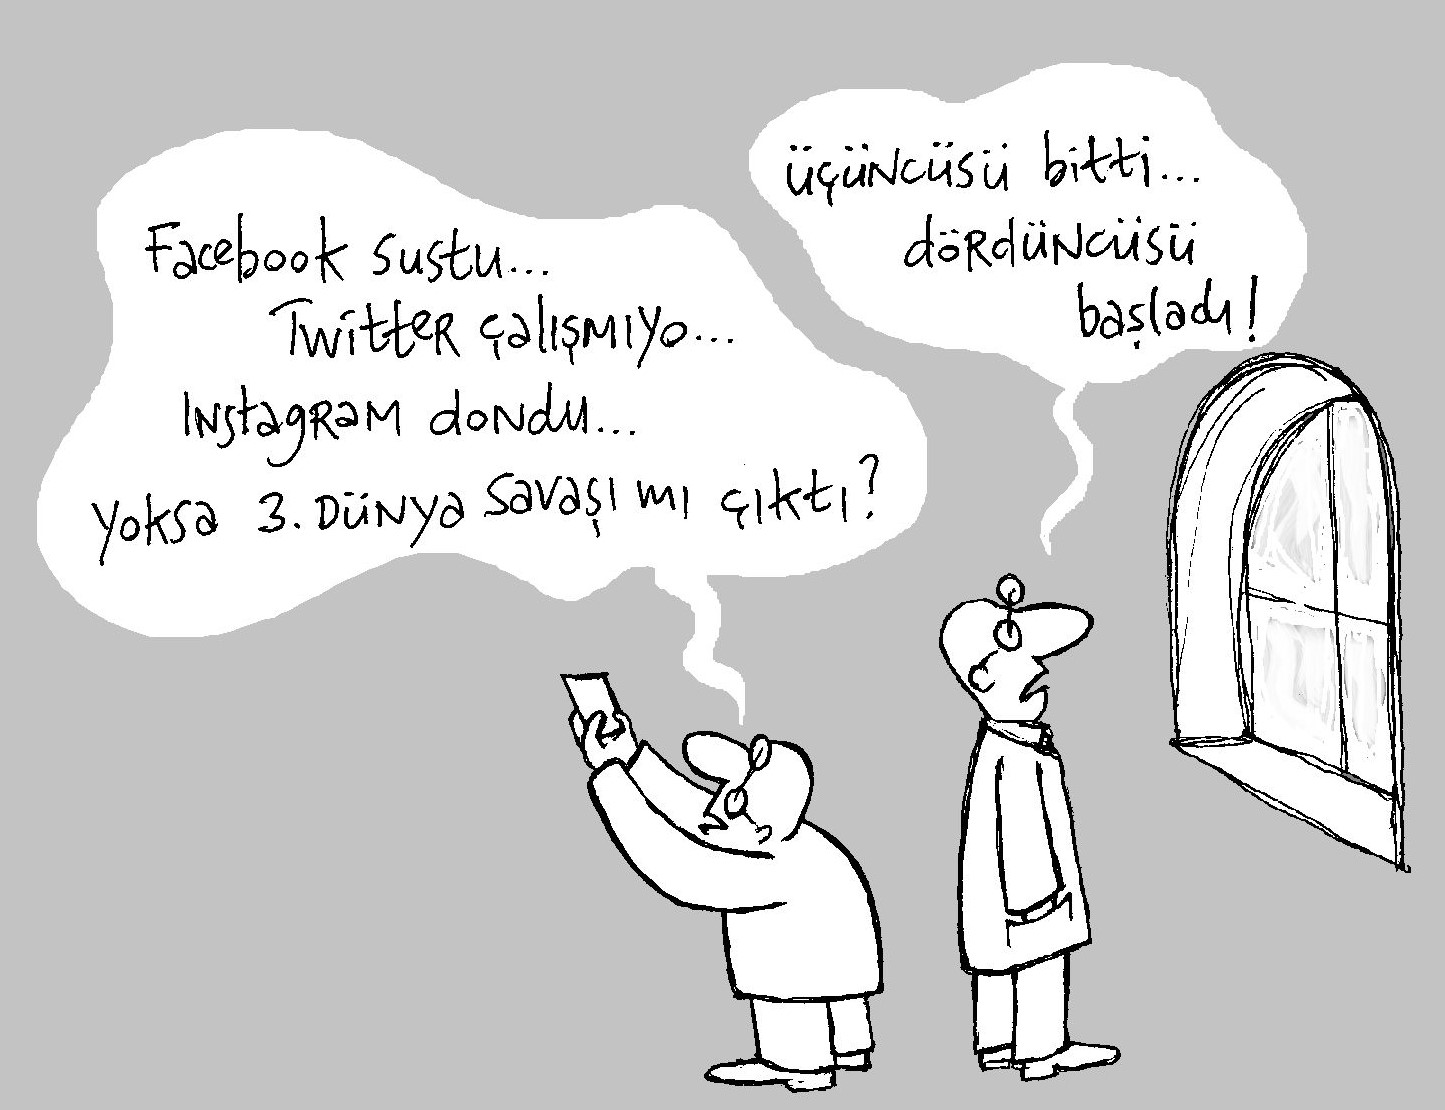 Facebook sustu...
Twitter çalışmıyo...
Instagram dondu...
yoksa 3. Dünya savaşı mı çıktı?
üçüncüsü bitti...
dördüncüsü
başladı!